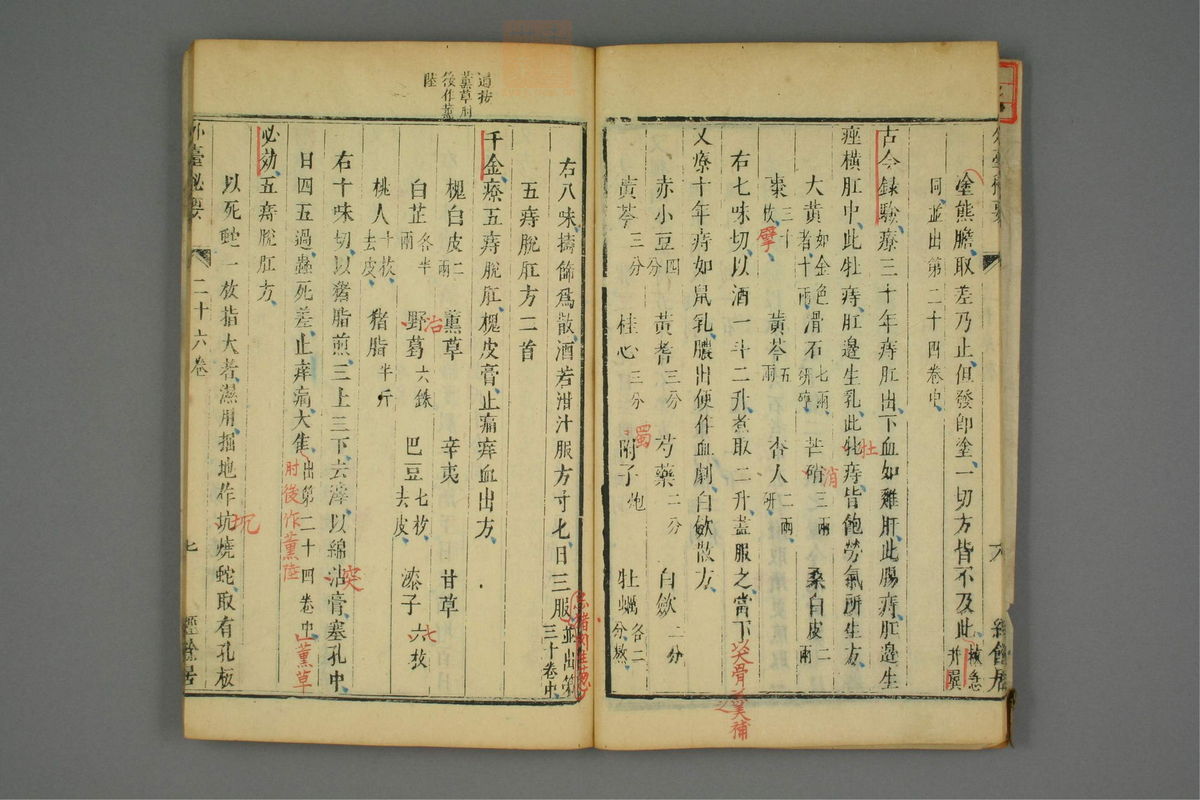 塗熊膽取差乃止但發即塗一切方皆不及此救急
同並出第二十四卷中
古今録驗療三十年痔肛出下血如雞肝此腸痔肛邊生
痤橫肛中此牡痔肛邊生乳此牝痔皆飽勞氣所生方
牡
大黃如金色者十兩 滑石七兩研碎 芒硝三兩 桑白皮二兩
消
棗三十枚 黃芩五兩 杏人二兩研
擘
右七味切以酒一斗二升煮取二升盡服之當下
又療十年痔如鼠乳膿出便作血劇白歛散方
赤小豆四分 黃耆三分 芍藥二分 白歛二分
黃芩三分 桂心三分 附子炮 牡蠣各二分熬
右八味擣篩為散酒若泔汁服方寸七日三服並出第三十卷中
五痔脫肛方二首
千金療五痔脫肛槐皮膏止痛癢血出方
槐白皮二兩 薰草 辛夷 甘草
白芷各半兩 野葛六銖 巴豆七枚去皮 漆子六枚
冶
七
桃人十枚去皮 豬脂半斤
右十味切以豬脂煎三上三下去滓以綿沾膏塞孔中
日四五過蟲死差止痒痛大隹出第二十四卷中
肘後作薰陸
薰草
必効五痔脫肛方
以死蛇一枚指大者濕用掘地作坑燒蛇取有孔板
坑
外臺秘要 二十六卷 七 經餘居
薰草肘
後作薰
陸